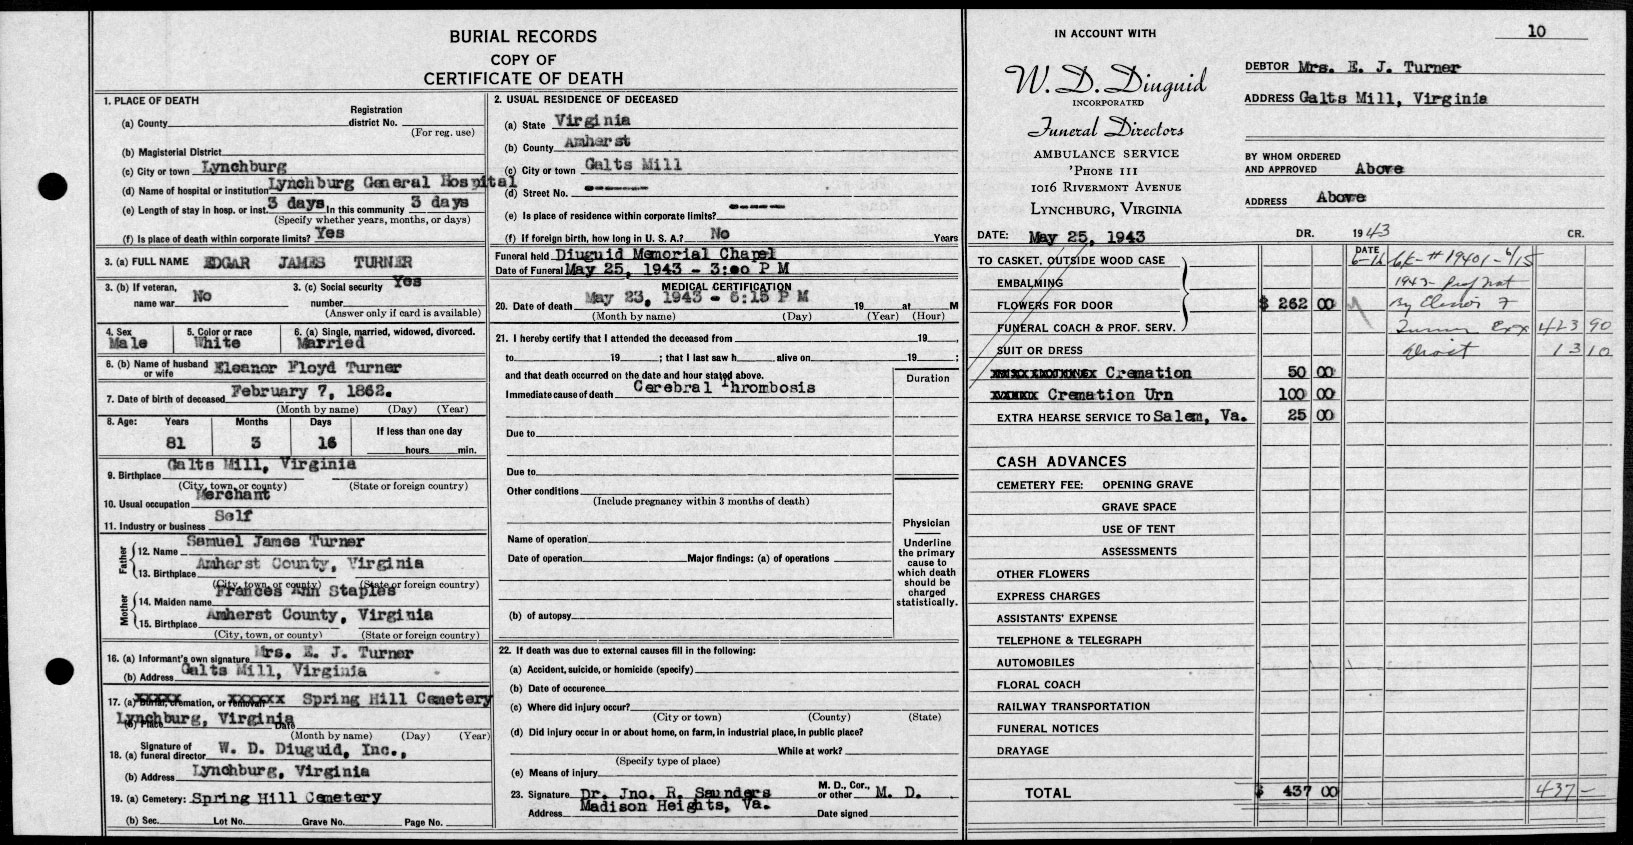 BURIAL RECORDS
COPY OF
CERTIFICATE OF DEATH
1. PLACE OF DEATH
(a) County
Registration district No.
(For reg. use)
(b) Magisterial District
(c) City or town Lynchburg
(d) Name of hospital or institution Lynchburg General Hospital
(e) Length of stay in hosp. or inst. 3 days In this community 3 days
(Specify whether years, months, or days)
(f) Is place of death within corporate limits? Yes
3. (a) FULL NAME EDGAR JAMES TURNER
3. (b) If veteran, name war No
3. (c) Social security number Yes
(Answer only if card is available)
4. Sex Male
5. Color or race White
6. (a) Single, married, widowed, divorced. Married
6. (b) Name of husband or wife Eleanor Floyd Turner
7. Date of birth of deceased February 7, 1862.
(Month by name) (Day) (Year)
8. Age: Years Months Days If less than one day
81 3 16 hours min.
9. Birthplace Galts Mill, Virginia
(City, town, or county) (State or foreign country)
10. Usual occupation Merchant
11. Industry or business Self
Father
12. Name Samuel James Turner
13. Birthplace Amherst County, Virginia
(City, town, or county) (State or foreign country)
Mother
14. Maiden name Frances Ann Staples
15. Birthplace Amherst County, Virginia
(City, town, or county) (State or foreign country)
16. (a) Informant's own signature Mrs. E. J. Turner
(b) Address Galts Mill, Virginia
17. (a) Burial, cremation, or removal Spring Hill Cemetery
(b) Place Lynchburg, Virginia Date
(Month by name) (Day) (Year)
18. (a) Signature of funeral director W. D. Diuguid, Inc.,
(b) Address Lynchburg, Virginia
19. (a) Cemetery: Spring Hill Cemetery
(b) Sec. Lot No. Grave No. Page No.
2. USUAL RESIDENCE OF DECEASED
(a) State Virginia
(b) County Amherst
(c) City or town Galts Mill
(d) Street No. -------
(e) Is place of residence within corporate limits? -----
(f) If foreign birth, how long in U. S. A.? No Years
Funeral held Diuguid Memorial Chapel
Date of Funeral May 25, 1943 - 3:00 P M
MEDICAL CERTIFICATION
20. Date of death May 23, 1943 - 6:15 P M 19 at M
(Month by name) (Day) (Year) (Hour)
21. I hereby certify that I attended the deceased from 19 ,
to 19 ; that I last saw h alive on 19 ;
and that death occurred on the date and hour stated above.
Duration
Immediate cause of death Cerebral Thrombosis
Due to
Due to
Other conditions
(Include pregnancy within 3 months of death)
Name of operation
Date of operation Major findings: (a) of operations
(b) of autopsy
Physician
Underline the primary cause to which death should be charged statistically.
22. If death was due to external causes fill in the following:
(a) Accident, suicide, or homicide (specify)
(b) Date of occurence
(c) Where did injury occur?
(City or town) (County) (State)
(d) Did injury occur in or about home, on farm, in industrial place, in public place?
While at work?
(Specify type of place)
(e) Means of injury
23. Signature Dr. Jno. R. Saunders M. D., Cor., or other M. D.
Address Madison Heights, Va. Date signed
IN ACCOUNT WITH
W. D. Diuguid
INCORPORATED
Funeral Directors
AMBULANCE SERVICE
'PHONE 111
1016 RIVERMONT AVENUE
LYNCHBURG, VIRGINIA
10
DEBTOR Mrs. E. J. Turner
ADDRESS Galts Mill, Virginia
BY WHOM ORDERED AND APPROVED Above
ADDRESS Above
DATE: May 25, 1943 DR. 1943 CR.
TO CASKET, OUTSIDE WOOD CASE
EMBALMING
FLOWERS FOR DOOR $ 262 00
FUNERAL COACH & PROF. SERV.
SUIT OR DRESS
Cremation 50 00
Cremation Urn 100 00
EXTRA HEARSE SERVICE TO Salem, Va. 25 00
DATE
6-16 Ck-#19401-6/15
1943-
By
Turner Exx 423 90
13 10
CASH ADVANCES
CEMETERY FEE: OPENING GRAVE
GRAVE SPACE
USE OF TENT
ASSESSMENTS
OTHER FLOWERS
EXPRESS CHARGES
ASSISTANTS' EXPENSE
TELEPHONE & TELEGRAPH
AUTOMOBILES
FLORAL COACH
RAILWAY TRANSPORTATION
FUNERAL NOTICES
DRAYAGE
TOTAL $ 437 00 437 -